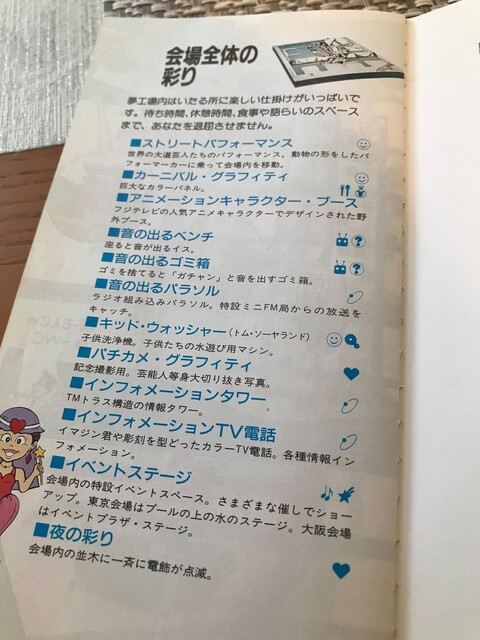 会場全体の
彩り
夢工場内はいたる所に楽しい仕掛けがいっぱいで
す。待ち時間、休憩時間、食事や語らいのスペース
まで、あなたを退屈させません。
■ストリートパフォーマンス
世界の大道芸人たちのパフォーマンス。動物の形をしたパ
フォーマーカーに乗って会場内を移動。
■カーニバル・グラフィティ
巨大なカラーパネル。
■アニメーションキャラクター・ブース
フジテレビの人気アニメキャラクターでデザインされた野
外ブース。
■音の出るベンチ
座ると音が出るイス。
■音の出るゴミ箱
ゴミを捨てると「ガチャン」と音を出すゴミ箱。
■音の出るパラソル
ラジオ組み込みパラソル。特設ミニFM局からの放送を
キャッチ。
■キッド・ウォッシャー(トム・ソーヤランド)
子供洗浄機。子供たちの水遊び用マシン。
■バチカメ・グラフィティ
記念撮影用。芸能人等身大切り抜き写真。
■インフォメーションタワー
TMトラス構造の情報タワー。
■インフォメーションTV電話
イマジン君や彫刻を型どったカラーTV電話。各種情報イン
フォメーション。
■イベントステージ
会場内の特設イベントスペース。さまざまな催しでショー
アップ。東京会場はプールの上の水のステージ。大阪会場
はイベントプラザ・ステージ。
■夜の彩り
会場内の並木に一斉に電飾が点滅。